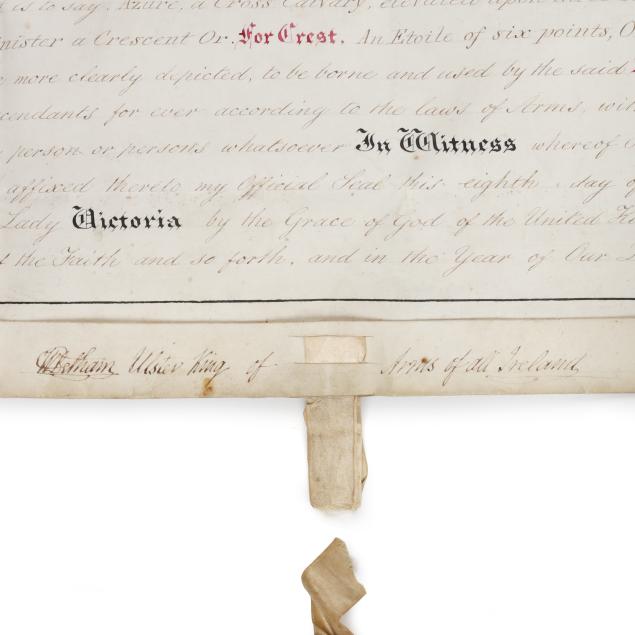 is to say, Azure, a Cross Calvary, elevated upon three
inister a Crescent Or. For Crest. An Etoile of six points, O
more clearly depicted, to be borne and used by the said
cendants for ever according to the laws of Arms, wit
person or persons whatsoever In Witness whereof
affixed thereto, my Official Seal this eighth day of
Lady Victoria by the Grace of God of the United Ki
the Faith and so forth, and in the Year of Our
Ulster King of Arms of all Ireland